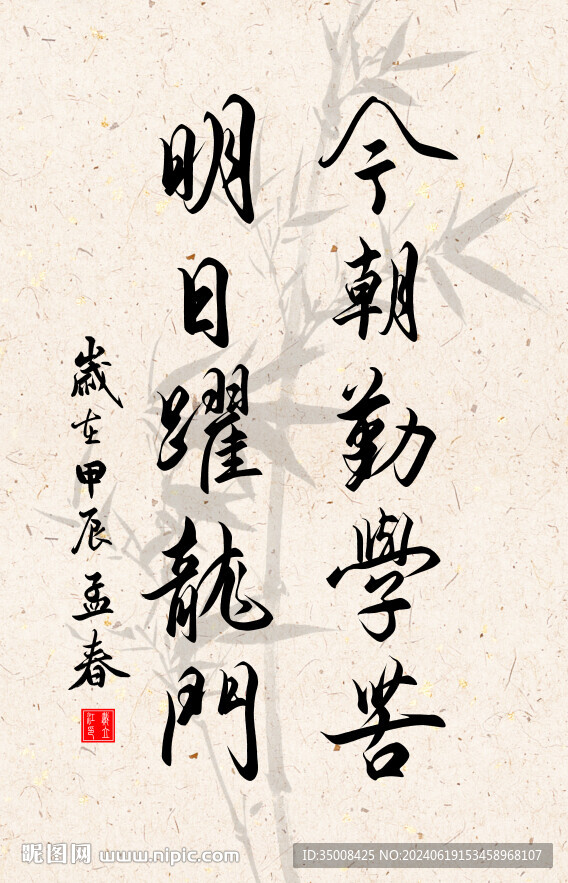 今朝勤學苦
明日躍龍門
歲在甲辰孟春
昵图网 www.nipic.com
ID:35008425 NO:20240619153458968107